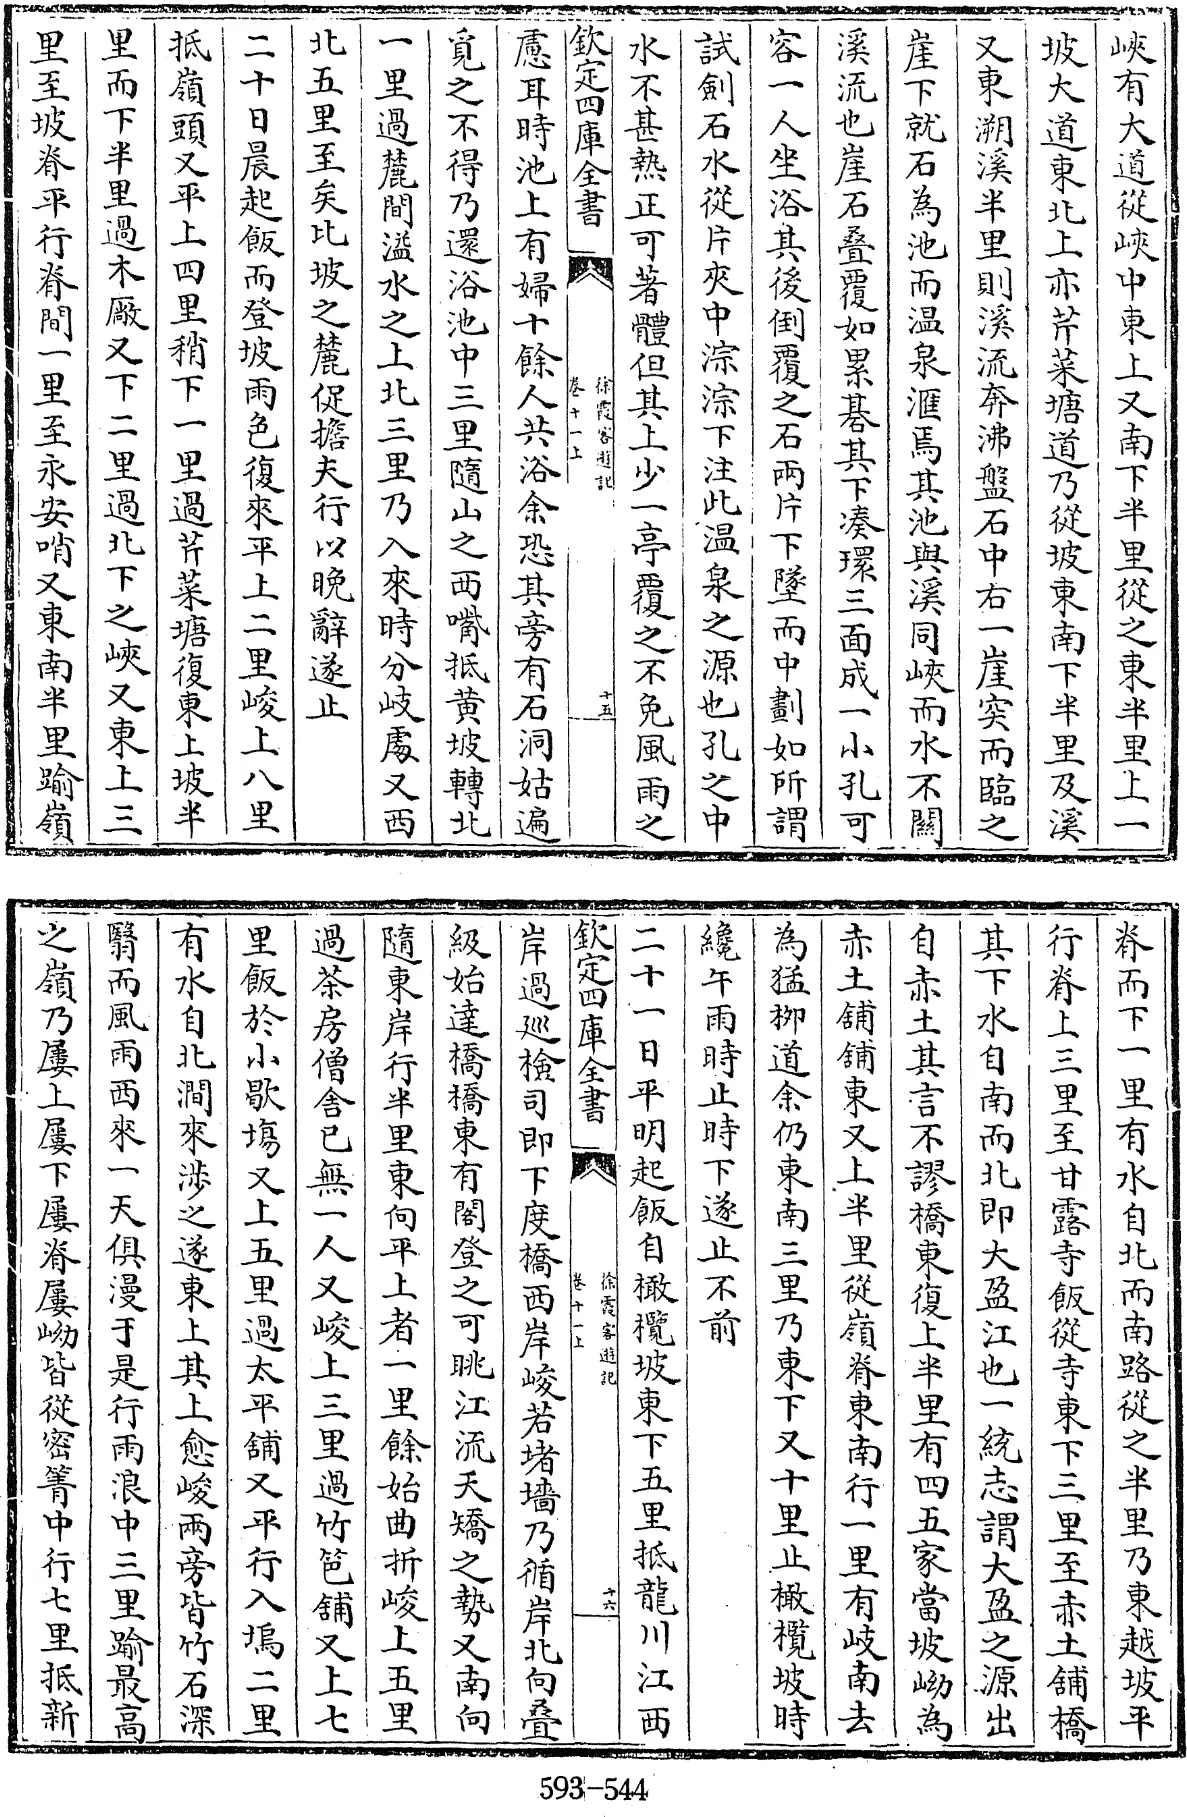 峽有大道從峽中東上又南下半里從之東半里上一
坡大道東北上亦芹菜塘道乃從坡東南下半里及溪
又東溯溪半里則溪流奔沸盤石中右一崖突而臨之
崖下就石為池而温泉滙焉其池與溪同峽而水不關
溪流也崖石叠覆如累碁其下凑環三面成一小孔可
容一人坐浴其後倒覆之石兩片下墜而中劃如所謂
試劍石水從片夾中淙淙下注此温泉之源也孔之中
水不甚熱正可著體但其上少一亭覆之不免風雨之
欽定四庫全書
徐霞客遊記
卷十一上
十五
慮耳時池上有婦十餘人共浴余恐其旁有石洞姑遍
覓之不得乃還浴池中三里隨山之西嘴抵黄坡轉北
一里過麓間溢水之上北三里乃入來時分岐處又西
北五里至矣比坡之麓促擔夫行以晚辭遂止
二十日晨起飯而登坡雨色復來平上二里峻上八里
抵嶺頭又平上四里稍下一里過芹菜塘復東上坡半
里而下半里過木廠又下二里過北下之峽又東上三
里至坡脊平行脊間一里至永安哨又東南半里踰嶺
脊而下一里有水自北而南路從之半里乃東越坡平
行脊上三里至甘露寺飯從寺東下三里至赤土鋪橋
其下水自南而北即大盈江也一統志謂大盈之源出
自赤土其言不謬橋東復上半里有四五家當坡㘭為
赤土舖舖東又上半里從嶺脊東南行一里有岐南去
為猛柳道余仍東南三里乃東下又十里止橄欖坡時
纔午雨時止時下遂止不前
二十一日平明起飯自橄欖坡東下五里抵龍川江西
欽定四庫全書
徐霞客遊記
卷十一上
十六
岸過廵檢司即下度橋西岸峻若堵墻乃循岸北向叠
級始達橋橋東有閣登之可眺江流天矯之勢又南向
隨東岸行半里東向平上者一里餘始曲折峻上五里
過茶房僧舍已無一人又峻上三里過竹笆舖又上七
里飯於小歇塲又上五里過太平舖又平行入塢二里
有水自北澗來涉之遂東上其上愈峻兩旁皆竹石深
翳而風雨西來一天俱漫于是行雨浪中三里踰最高
之嶺乃屢上屢下屢脊屢㘭皆從密箐中行七里抵新
593-544